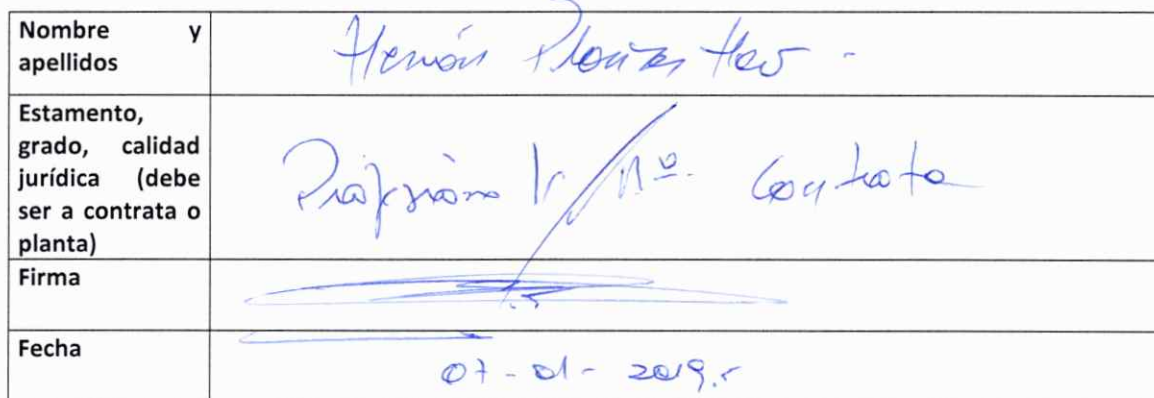 Nombre y
apellidos
Hernán
Estamento,
grado, calidad
jurídica (debe
ser a contrata o
planta)
Contrata
Firma
Fecha
07-01-2019.